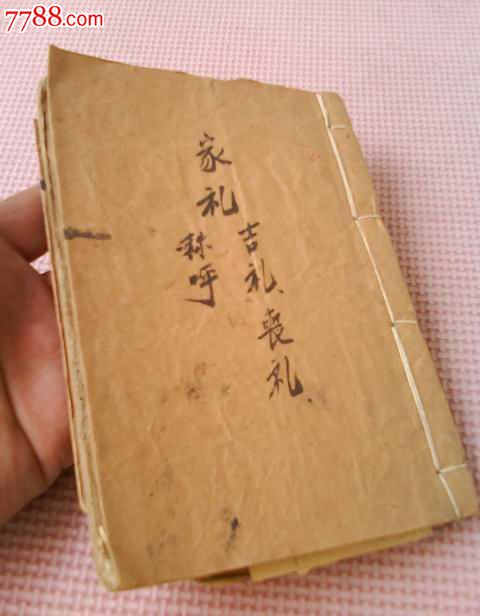 7788.com
家礼
吉礼、喪礼、
称呼